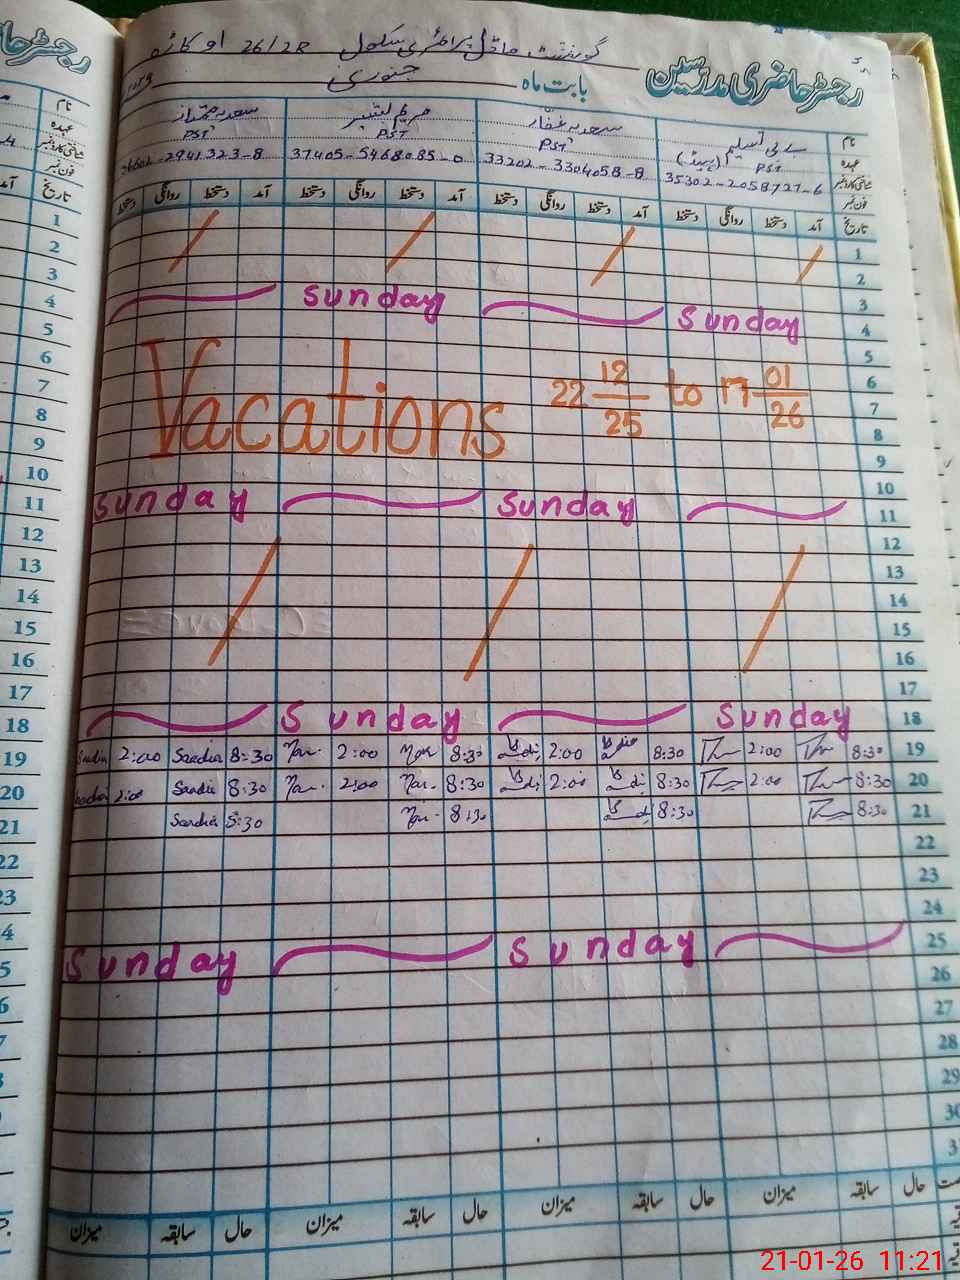 گورنمنٹ ماڈل پرائمری سکول 26/2R اوکاڑہ
رجسٹر حاضری مدرسین بابت ماہ جنوری
نام سعدیہ غفار سعدیہ ممتاز
عہدہ PST (ہیڈ) PST PST PST
شناختی کارڈ نمبر 35302-2058727-6 33202-3304058-8 37405-5468085-0 -2941323-8
فون نمبر
تاریخ آمد دستخط روانگی دستخط آمد دستخط روانگی دستخط آمد دستخط روانگی دستخط آمد دستخط روانگی دستخط
1
2
3
4 Sunday Sunday
5
6
7 Vacations 22 12/25 to 17 01/26
8
9
10
11 Sunday Sunday
12
13
14
15
16
17
18 Sunday Sunday
19 8:30 2:00 8:30 2:00 8:30 Mar. 2:00 Mar. 8:30 Saadia 2:00 Saadia
20 8:30 2:00 8:30 2:00 8:30 Mar. 2:00 Mar. 8:30 Saadia 2:00 Saadia
21 8:30 8:30 8:30 Mar. 8:30 Saadia
22
23
24
25 Sunday Sunday
26
27
28
29
30
31
حال سابقہ میزان حال سابقہ میزان حال سابقہ میزان حال سابقہ میزان
21-01-26 11:21